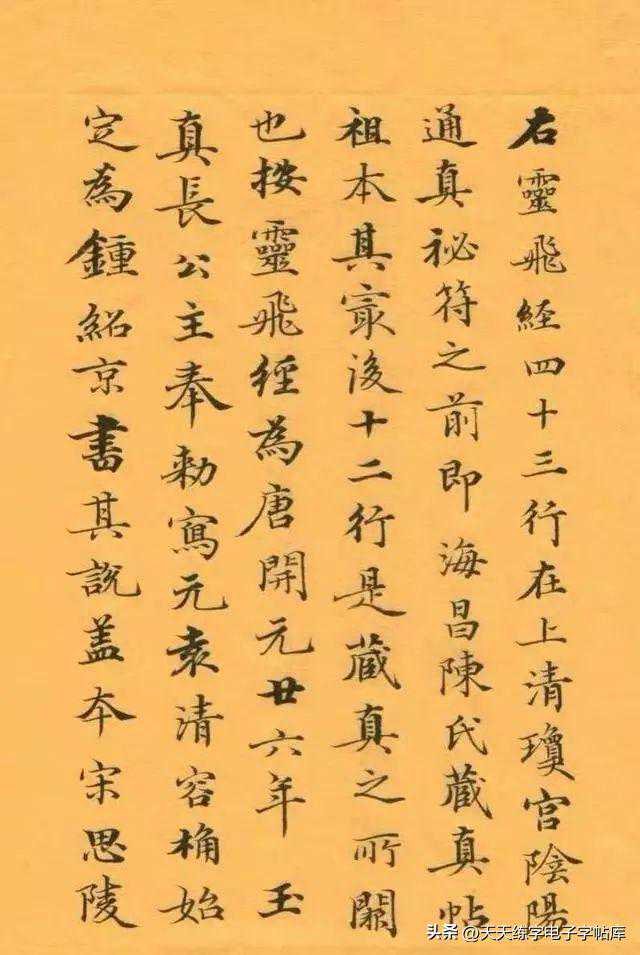 右靈飛経四十三行在上清瓊宮陰陽
通真祕符之前即海昌陳氏藏真帖
祖本其冣後十二行是蔵真之所闕
也按靈飛經為唐開元廿六年玉
真長公主奉勅寫元袁清容桷始
定為鍾紹京書其說盖本宋思陵
头条 @天天练字电子字帖库